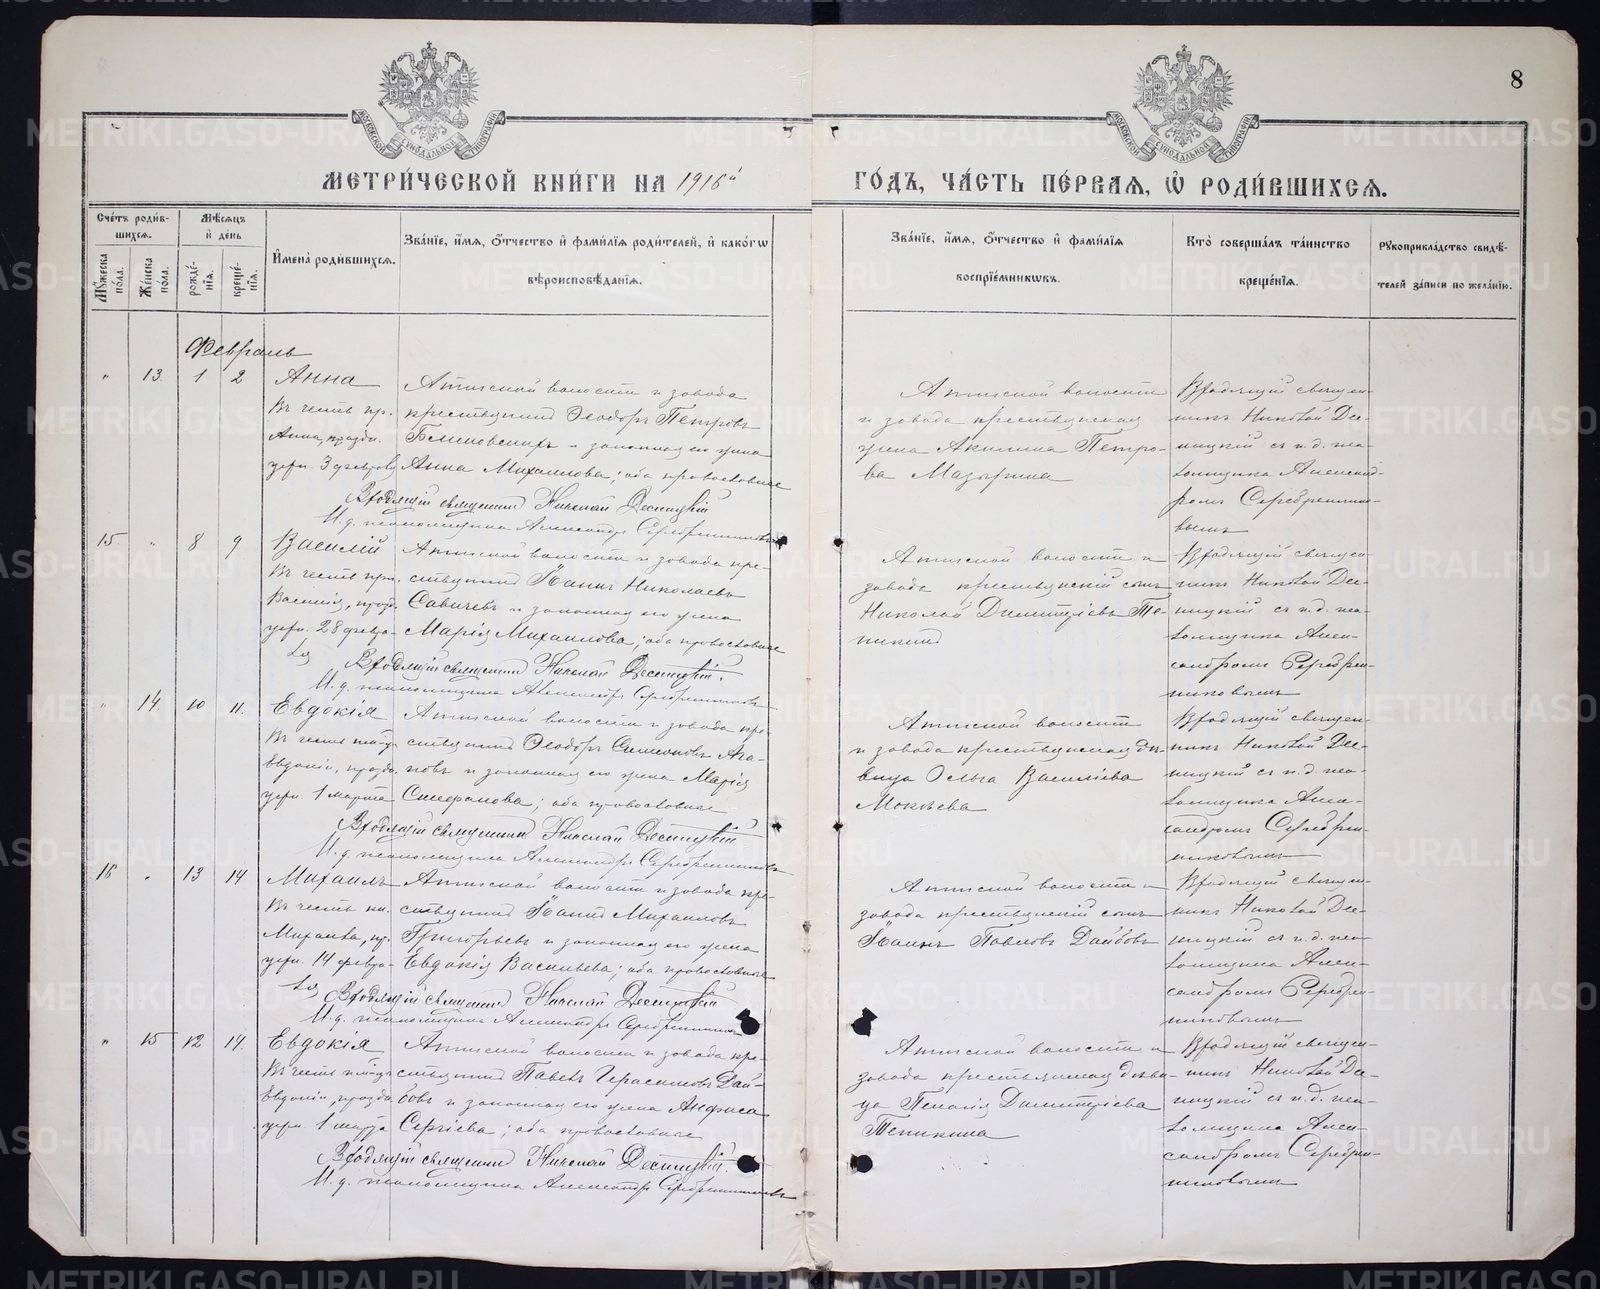 8
МОСКОВСКОЙ СѴНОДАЛЬНОЙ ТИПОГРАФІИ
МОСКОВСКОЙ СѴНОДАЛЬНОЙ ТИПОГРАФІИ
МЕТРИ́ЧЕСКОЙ КНИ́ГИ НА 1916й
ГО́ДЪ, ЧА́СТЬ ПЕ́РВАЯ, Ѡ РОДИ́ВШИХСЯ.
Сче́тъ роди́в-
шихся.
Мѣ́сяцъ
и҆ де́нь
Мꙋ́жеска по́ла.
Же́нска по́ла.
рожде́-
нїя.
креще́-
нїя.
И҆мена̀ роди́вшихся.
Зва́нїе, и҆́мя, ѻ҆́тчество и҆ фами́лїя роди́телей, и҆ како́гѡ
вѣроисповѣ́данїя.
Зва́нїе, и҆́мя, ѻ҆́тчество и҆ фами́лїя
воспрїе́мникѡвъ.
Кто̀ соверша́лъ та́инство
креще́нїя.
Рꙋкоприкла́дство свидѣ́-
телей за́писи по жела́нїю.
Февраль
" 13. 1 2
Анна
Въ честь пр.
Анны, праздн.
церк. 3 февраля
Атигской волости и завода
крестьянинъ Ѳеодоръ Петровъ
и законная его жена
Анна Михаилова; оба православные
Входящій священникъ Николай Десницкій
И. д. псаломщика Александръ Серебренниковъ
Атигской волости
и завода крестьянская
жена Акилина Петро-
ва Мазурина
Входящій священ-
никъ Николай Дес-
ницкій съ и. д. пса-
ломщика Александ-
ромъ Серебренни-
вымъ
15. " 8 9
Василій
Въ честь прп.
Василія, празд.
церк. 28 февра-
ля
Атигской волости и завода кре-
стьянинъ Іоаннъ Николаевъ
Савичевъ и законная его жена
Марія Михаилова; оба православные
Входящій священникъ Николай Десницкій.
И. д. псаломщика Александръ Серебренниковъ
Атигской волости и
завода крестьянскій сынъ
Николай Димитріевъ Те-
пикинъ
Входящій священ-
никъ Николай Дес-
ницкій съ и. д. пса-
ломщика Алек-
сандромъ Серебрен-
никовымъ
" 14. 10 11.
Евдокія
Въ честь прмц.
Евдокіи, праздн.
церк. 1 марта
Атигской волости и завода кре-
стьянинъ Ѳеодоръ Симеоновъ Ага-
повъ и законная его жена Марія
Стефанова; оба православные
Входящій священникъ Николай Десницкій
И. д. псаломщика Александръ Серебренниковъ
Атигской волости
и завода крестьянская дѣ-
вица Ольга Василіева
Мокѣева
Входящій священ-
никъ Николай Дес-
ницкій съ и. д. пса-
ломщика Алек-
сандромъ Серебрен-
никовымъ
16 " 13 14
Михаилъ
Въ честь кн.
Михаила, пр.
церк. 14 февра-
ля
Атигской волости и завода кре-
стьянинъ Іоаннъ Михаиловъ
Григорьевъ и законная его жена
Евдокія Васильева; оба православные
Входящій священникъ Николай Десницкій
И. д. псаломщика Александръ Серебренниковъ
Атигской волости и
завода крестьянскій сынъ
Іоаннъ Павловъ Дайбовъ
Входящій священ-
никъ Николай Дес-
ницкій съ и. д. пса-
ломщика Алек-
сандромъ Серебрен-
никовымъ
" 15 12 14.
Евдокія
Въ честь прмц.
Евдокіи, праздн.
церк. 1 марта
Атигской волости и завода кре-
стьянинъ Павелъ Герасимовъ Дай-
бовъ и законная его жена Анфиса
Сергіева; оба православные
Входящій священникъ Николай Десницкій.
И. д. псаломщика Александръ Серебренниковъ
Атигской волости и
завода крестьянская дѣви-
ца Пелагія Димитріева
Тепикина
Входящій священ-
никъ Николай Дес-
ницкій съ и. д. пса-
ломщика Алек-
сандромъ Серебрен-
никовымъ
METRIKI.GASO-URAL.RU